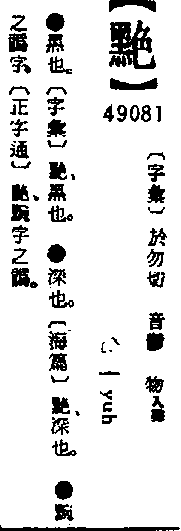 49081
〔字彙〕於勿切 音 物入聲
yuh
●黑也。〔字彙〕黑也。●深也。〔海篇〕深也。●
之譌字。〔正字通〕字之譌。